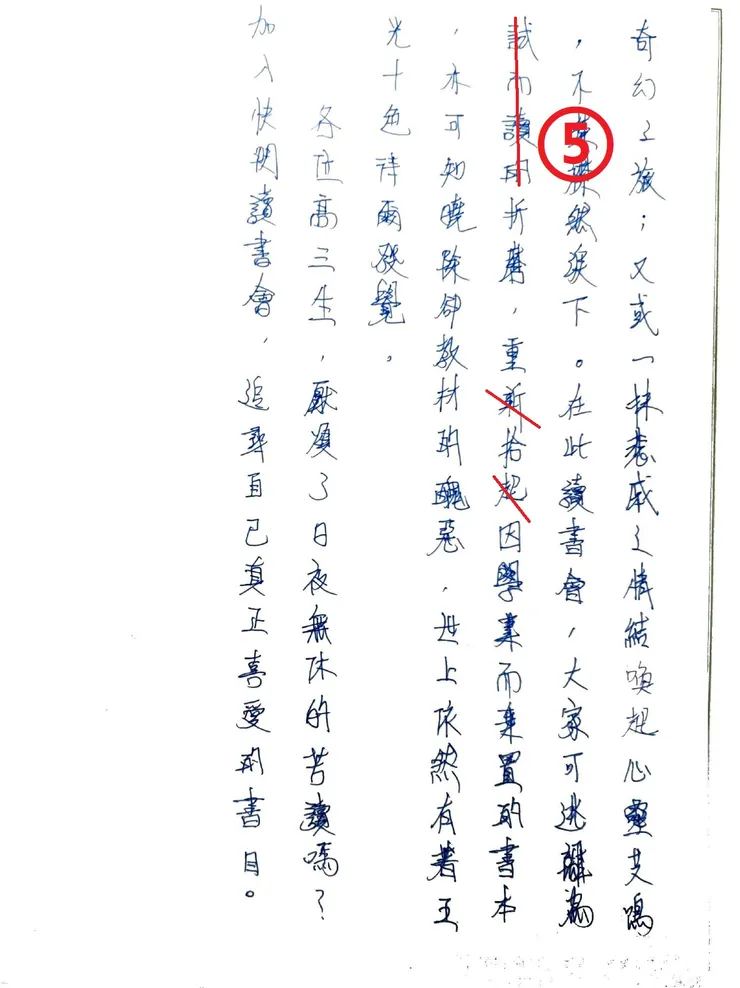 奇幻之旅；又或一抹悲慼之情結喚起心靈共鳴
，不然淚下。在此讀書會，大家可逃離為
⑤
試而讀的折磨，重新拾起因學業而棄置的書本
，亦可知曉除卻教材的醜惡，世上依然有著五
光十色待爾發覺。
各位高三生，厭煩了日夜無休的苦讀嗎？
加入快閃讀書會，追尋自己真正喜愛的書目。